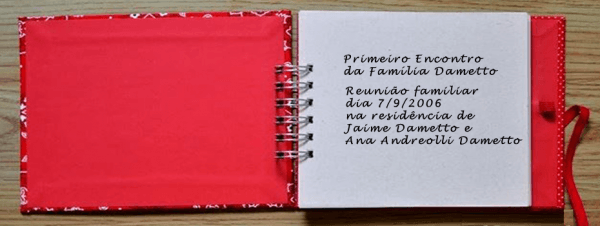 Primeiro Encontro
da Familia Dametto
Reunião familiar
dia 7/9/2006
na residência de
Jaime Dametto e
Ana Andreolli Dametto